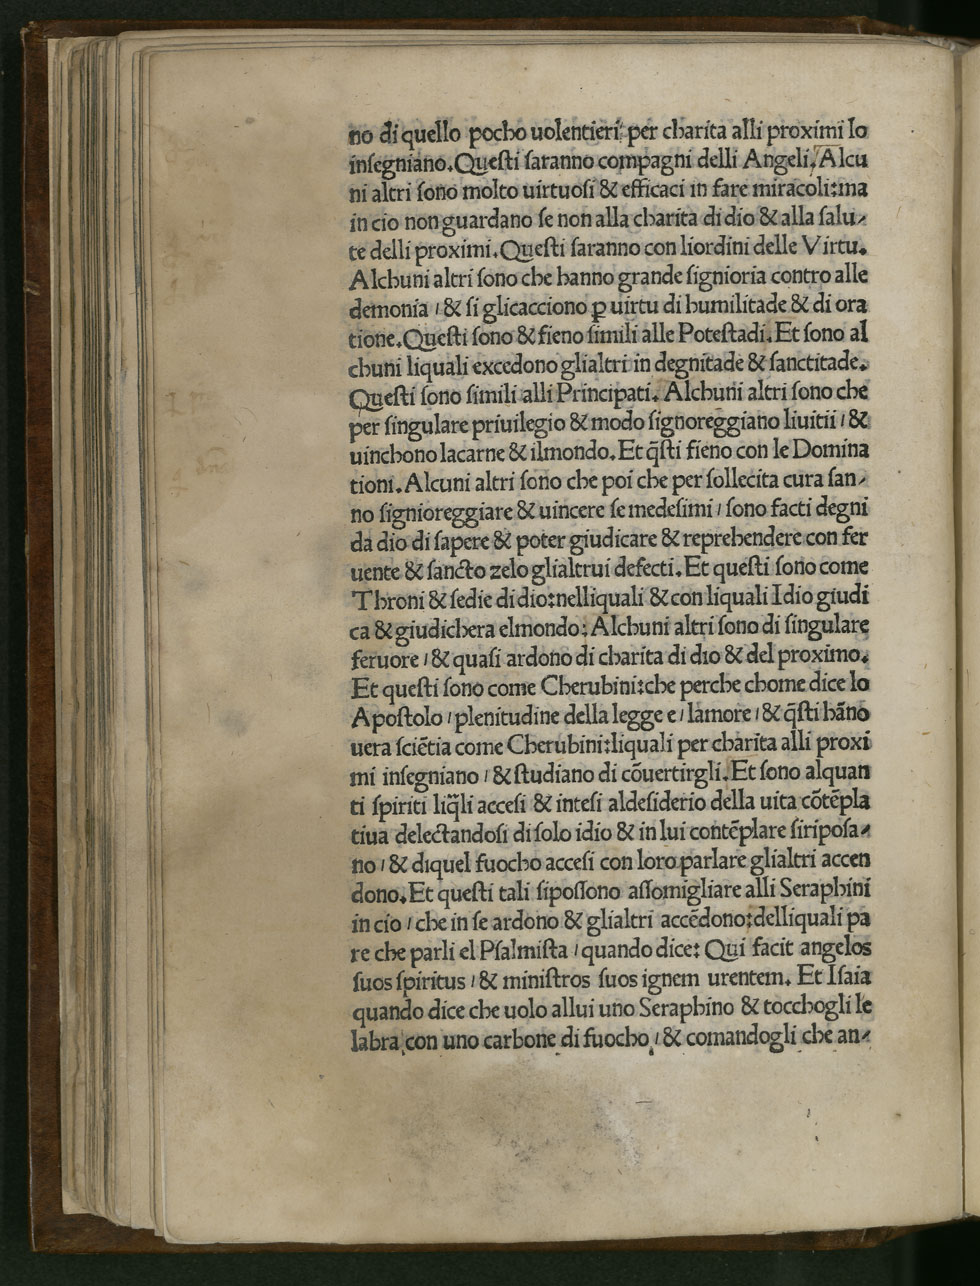 no di quello pocho uolentieri: per charita alli proximi lo
inſegniano. Queſti ſaranno compagni delli Angeli. Alcu
ni altri ſono molto uirtuoſi & efficaci in fare miracoli: ma
in cio non guardano ſe non alla charita di dio & alla ſalu⸗
te delli proximi. Queſti ſaranno con liordini delle Virtu.
Alchuni altri ſono che hanno grande ſignioria contro alle
demonia / & ſi glicacciono ꝑ uirtu di humilitade & di ora
tione. Queſti ſono & fieno ſimili alle Poteſtadi. Et ſono al
chuni liquali excedono glialtri in degnitade & ſanctitade.
Queſti ſono ſimili alli Principati. Alchuni altri ſono che
per ſingulare priuilegio & modo ſignoreggiano liuitii / &
uinchono lacarne & ilmondo. Et q̄ſti fieno con le Domina
tioni. Alcuni altri ſono che poi che per ſollecita cura ſan⸗
no ſignioreggiare & uincere ſe medeſimi / ſono facti degni
da dio di ſapere & poter giudicare & reprehendere con fer
uente & ſancto zelo glialtrui defecti. Et queſti ſono come
Throni & ſedie di dio: nelliquali & con liquali Idio giudi
ca & giudichera elmondo: Alchuni altri ſono di ſingulare
feruore / & quaſi ardono di charita di dio & del proximo.
Et queſti ſono come Cherubini: che perche chome dice lo
Apoſtolo / plenitudine della legge e / lamore / & q̄ſti hāno
uera ſciētia come Cherubini: liquali per charita alli proxi
mi inſegniano / & ſtudiano di cōuertirgli. Et ſono alquan
ti ſpiriti liq̄li acceſi & inteſi aldeſiderio della uita cōtēpla
tiua delectandoſi di ſolo idio & in lui contēplare ſiripoſa⸗
no / & diquel fuocho acceſi con loro parlare glialtri accen
dono. Et queſti tali ſipoſſono aſſomigliare alli Seraphini
in cio / che in ſe ardono & glialtri accēdono: delliquali pa
re che parli el Pſalmiſta / quando dice: Qui facit angelos
ſuos ſpiritus / & miniſtros ſuos ignem urentem. Et Iſaia
quando dice che uolo allui uno Seraphino & tocchogli le
labra con uno carbone di fuocho / & comandogli che an⸗